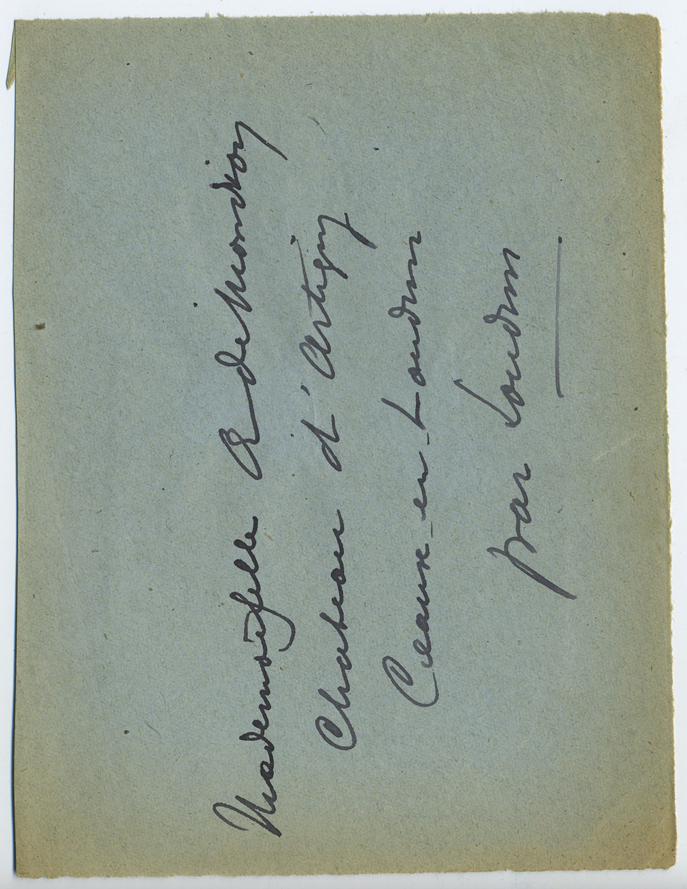 Mademoiselle A de Mondion
Chateau d'Artigny
Ceaux-en-Loudun
par Loudun